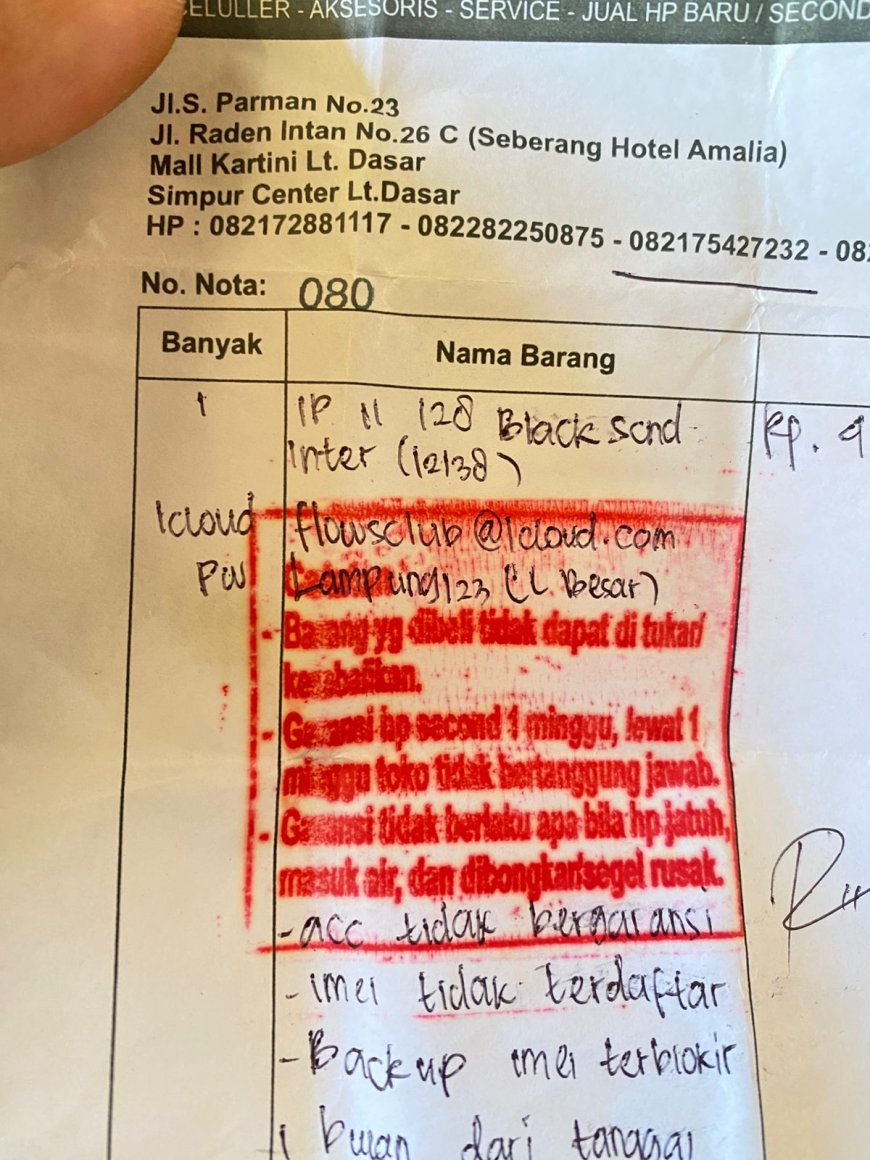 CELULLER - AKSESORIS - SERVICE - JUAL HP BARU / SECOND
Jl.S. Parman No.23
Jl. Raden Intan No.26 C (Seberang Hotel Amalia)
Mall Kartini Lt. Dasar
Simpur Center Lt.Dasar
HP : 082172881117 - 082282250875 - 082175427232 - 08
No. Nota: 080
Banyak Nama Barang
1 IP 11 128 Black scnd Rp. 4
Inter (12138)
Icloud flowsclub@icloud.com
PW Lampung123 (L Besar)
- Barang yg dibeli tidak dapat di tukar/
kembalikan.
- Garansi hp second 1 minggu, lewat 1
minggu toko tidak bertanggung jawab.
- Garansi tidak berlaku apa bila hp jatuh,
masuk air, dan dibongkar/segel rusak.
- acc tidak bergaransi
- imei tidak terdaftar
- Backup imei terblokir
1 bulan dari tanggal